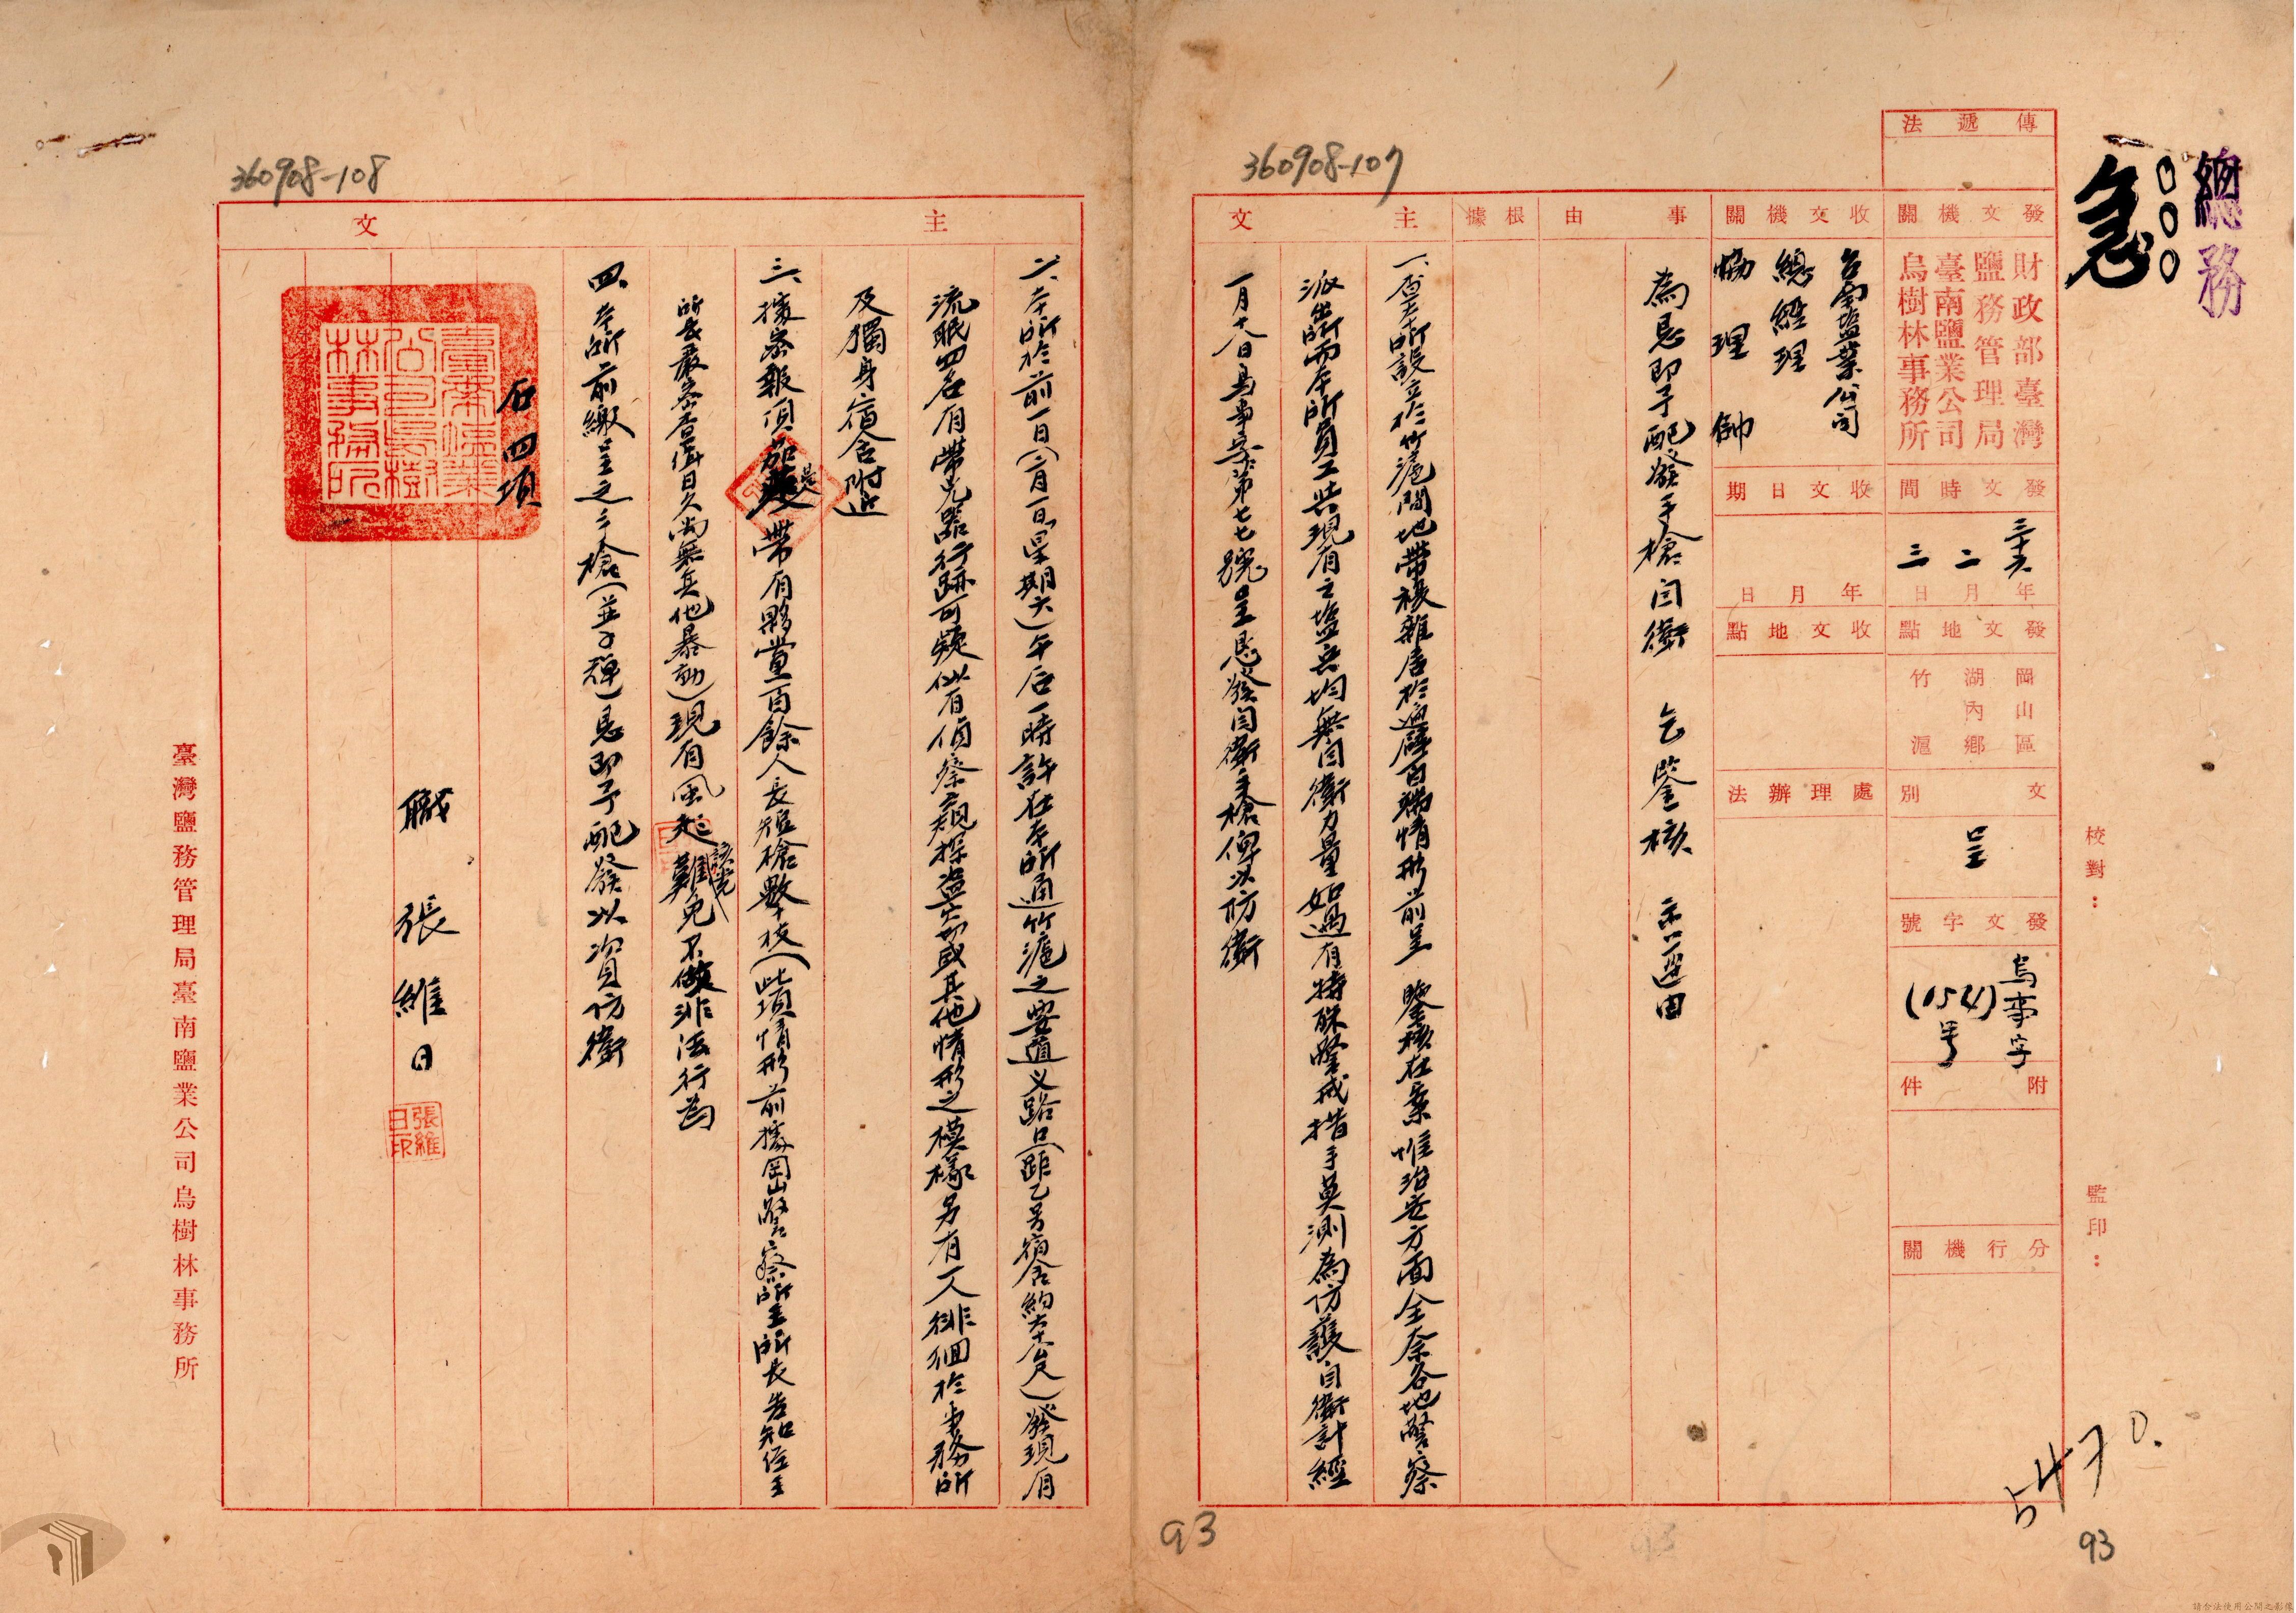 總務
急
360908-107
傳遞法
發文機關
財政部臺灣
鹽務管理局
臺南鹽業公司
烏樹林事務所
發文時間
三十六年
二月
三日
發文地點
岡山區
湖內鄉
竹滬
文別
呈
發文字號
烏事字
(0521)
号
附件
分行機關
收文機關
台南塩業公司
總經理
協理
帥
收文日期
年月日
收文地點
處理辦法
事由
為懇即予配發手槍自衛 乞鑒核 示遵由
根據
主文
一、本所設立於竹滬間地帶複雜居於遍僻百端情形前呈 鑒核在案惟治安方面全奈各地警察
派出所而本所員工與現有之塩兵均無自衛力量如遇有特殊警戒措手莫測為防護自衛計經
一月十八日烏事字第七七號呈懇發自衛手槍俾以防衛
校對：
監印：
5470.
93
93
360908-108
主文
二、本所於前一日(二月一日星期六)午后一時許在本所通竹滬之要道义路口(距乙号宿舍約六十公尺)發現有
流氓四名有帶兇器行跡可疑似有偵察窺探盜竊或其他情形之模樣另有一人徘徊於事務所
及獨身宿舍附近
三、據密報項茄 帶有夥黨一百餘人長短槍數十枝(此項情形前據岡山警察所王所長告知經王
所長嚴密查緝日久尚無其他暴動)現有風起該党難免不做非法行為
四、本所前繳呈之手槍(並子彈)懇即予配發以資防衛
右四項
臺南塩業
公司烏樹
林事務所
職 張維日
張維
日印
臺灣鹽務管理局臺南鹽業公司烏樹林事務所
請合法使用公開之影像